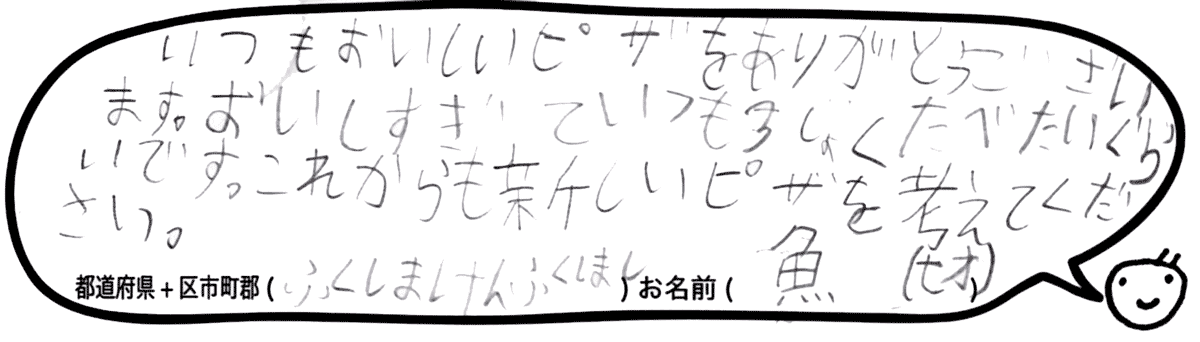 いつもおいしいピザをありがとうございい
ます。おいしすぎていつも3しょくたべたいぐら
いです。これからも新しいピザを考えてくだ
さい。
都道府県+区市町郡(ふくしまけんふくしまし)お名前(魚(七才))